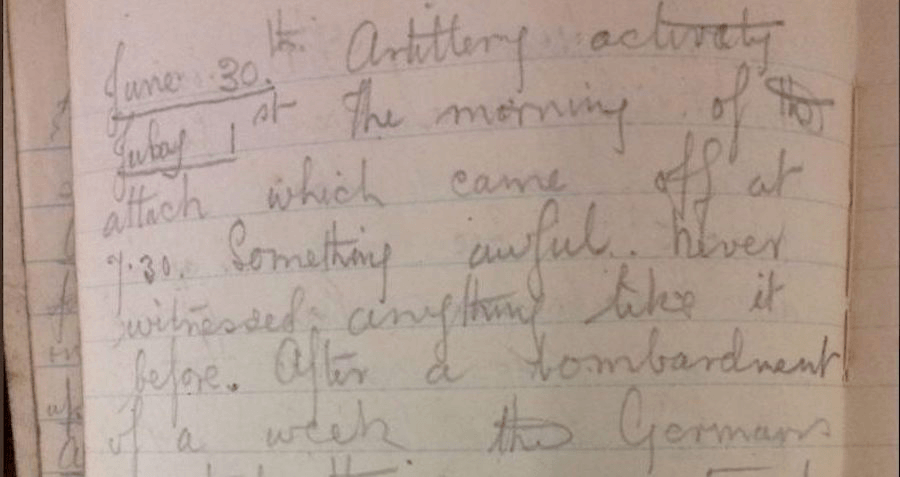 June 30.th Artillery activaty
Julay 1st The morning of the
attack which came off at
7.30. Something awful.. never
witnessed anything like it
before. After a bombardment
of a week the Germans